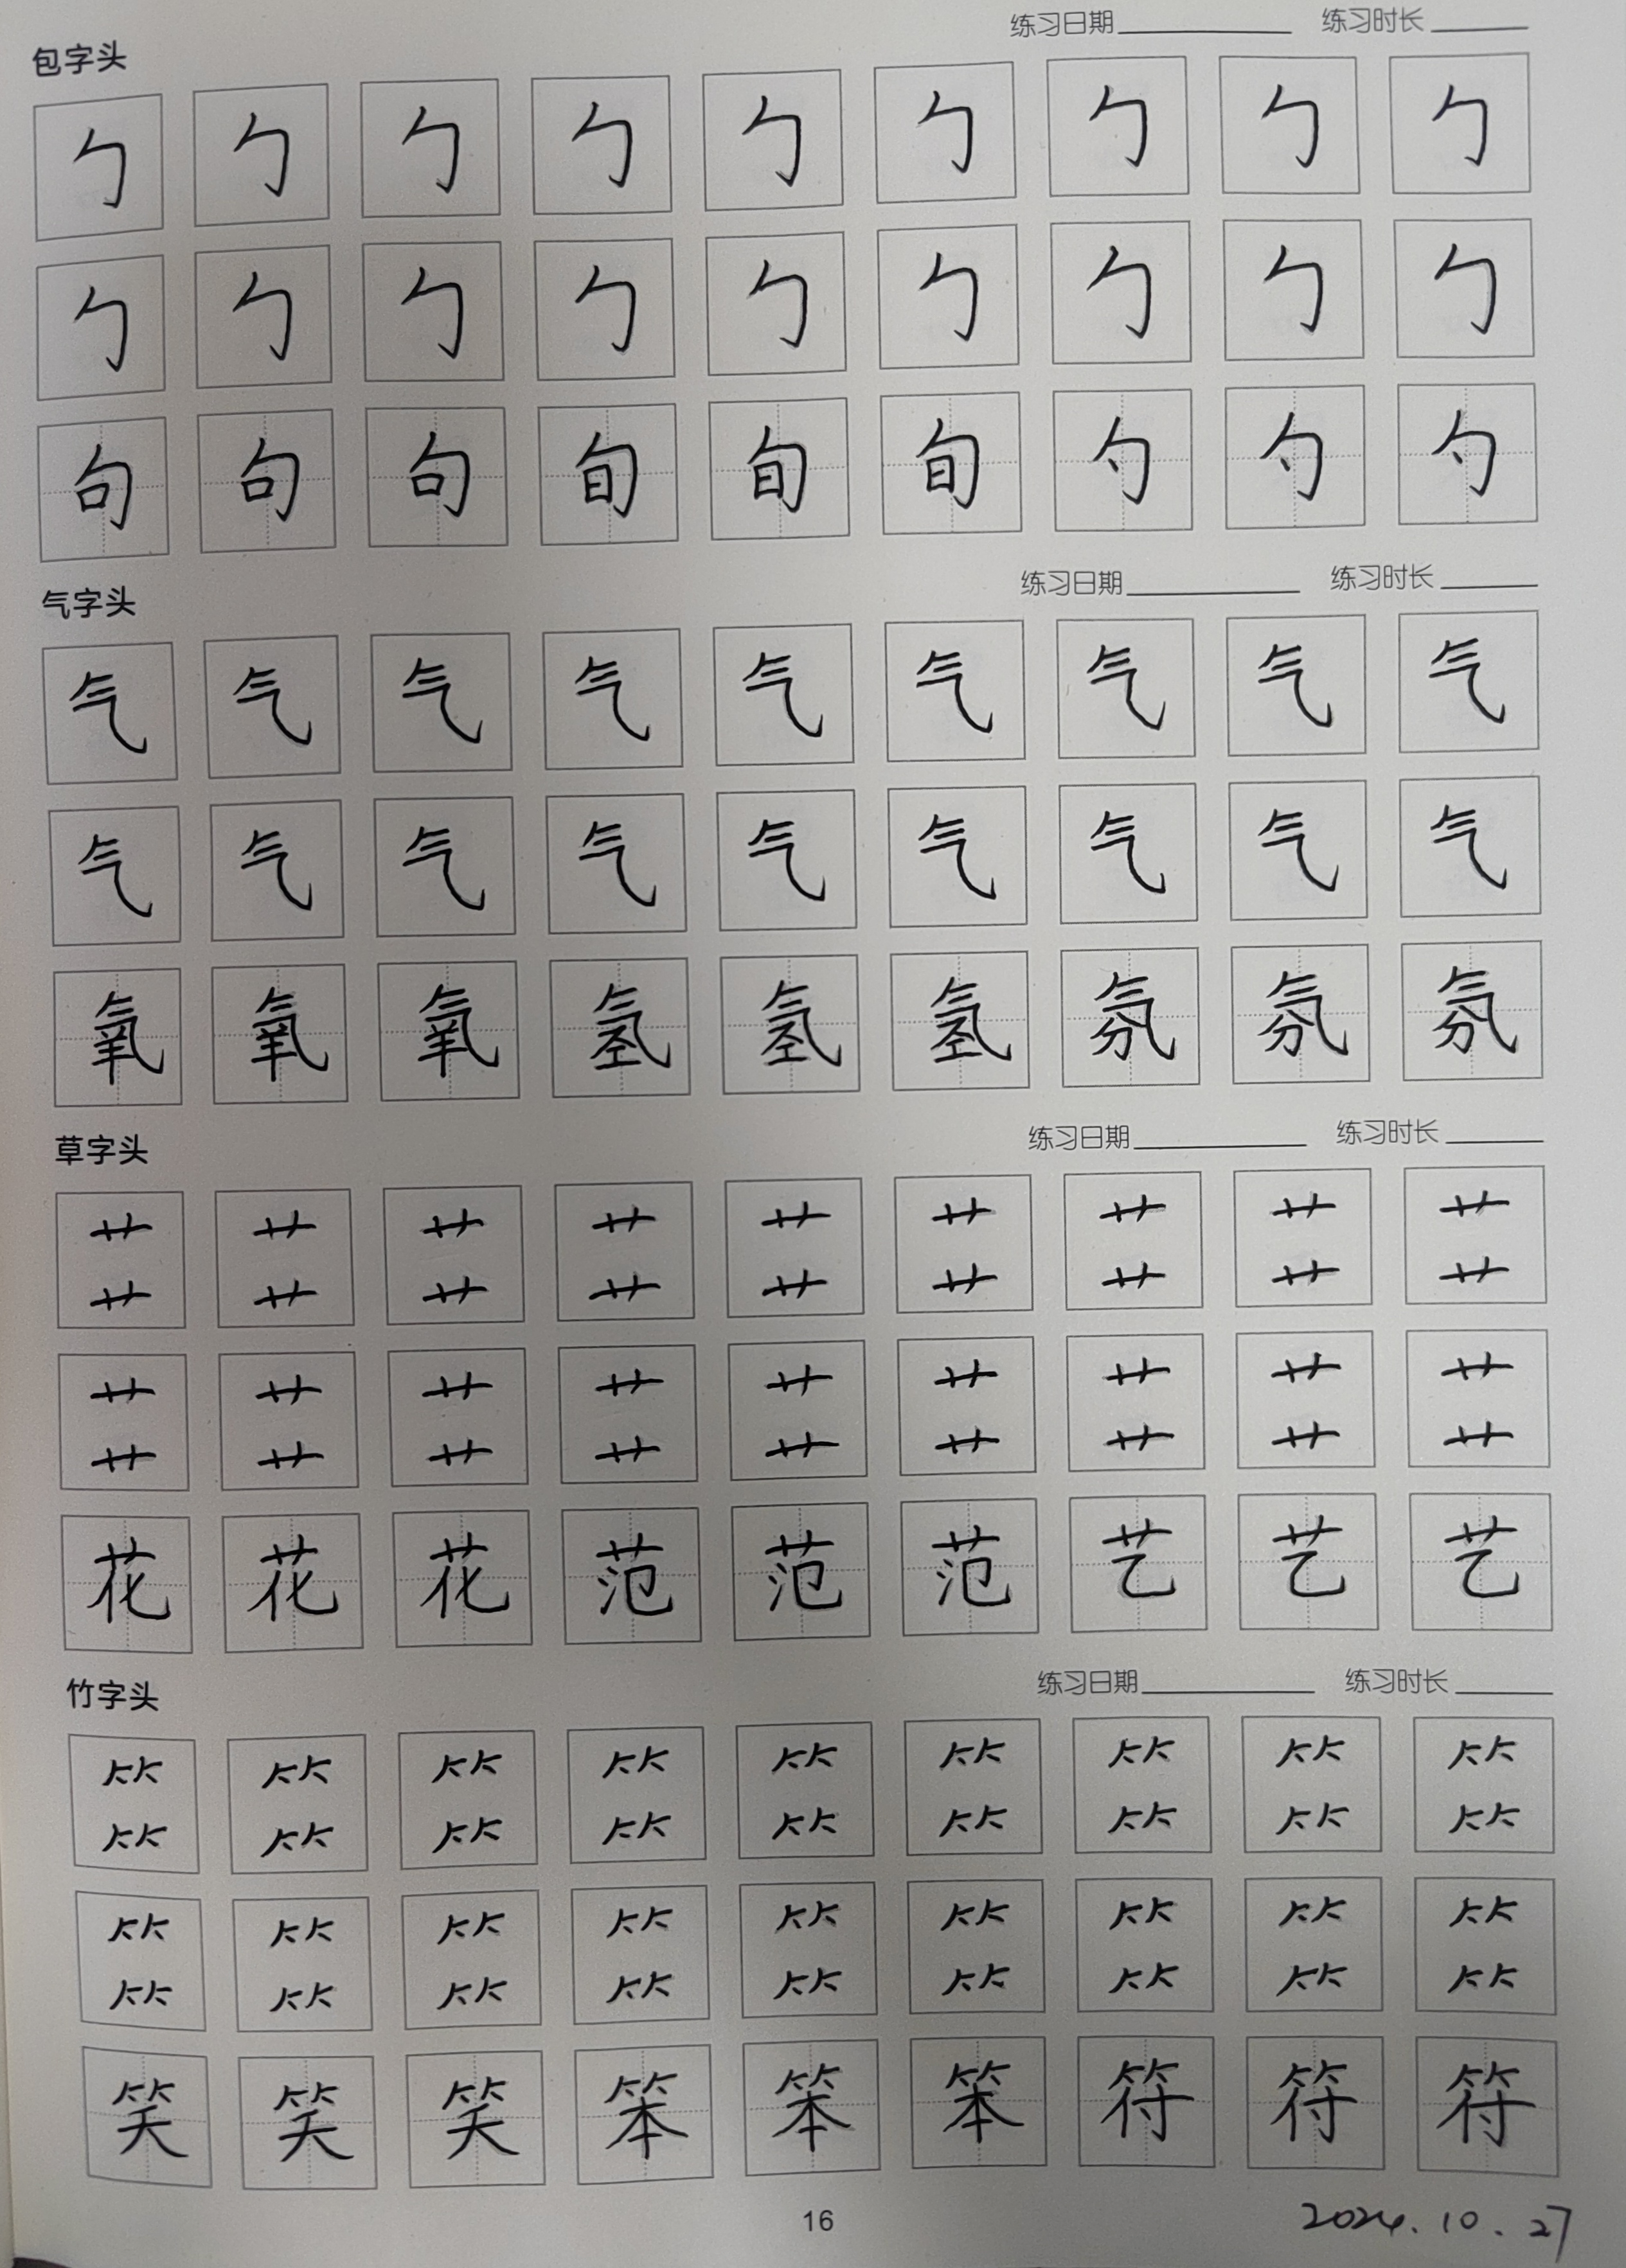 练习日期 练习时长
包字头
勹 勹 勹 勹 勹 勹 勹 勹 勹
勹 勹 勹 勹 勹 勹 勹 勹 勹
句 句 句 旬 旬 旬 勺 勺 勺
练习日期 练习时长
气字头
气 气 气 气 气 气 气 气 气
气 气 气 气 气 气 气 气 气
氧 氧 氧 氢 氢 氢 氛 氛 氛
练习日期 练习时长
草字头
艹 艹 艹 艹 艹 艹 艹 艹 艹
艹 艹 艹 艹 艹 艹 艹 艹 艹
艹 艹 艹 艹 艹 艹 艹 艹 艹
艹 艹 艹 艹 艹 艹 艹 艹 艹
花 花 花 范 范 范 艺 艺 艺
练习日期 练习时长
竹字头
⺮ ⺮ ⺮ ⺮ ⺮ ⺮ ⺮ ⺮ ⺮
⺮ ⺮ ⺮ ⺮ ⺮ ⺮ ⺮ ⺮ ⺮
⺮ ⺮ ⺮ ⺮ ⺮ ⺮ ⺮ ⺮ ⺮
⺮ ⺮ ⺮ ⺮ ⺮ ⺮ ⺮ ⺮ ⺮
笑 笑 笑 笨 笨 笨 符 符 符
16
2024.10.27